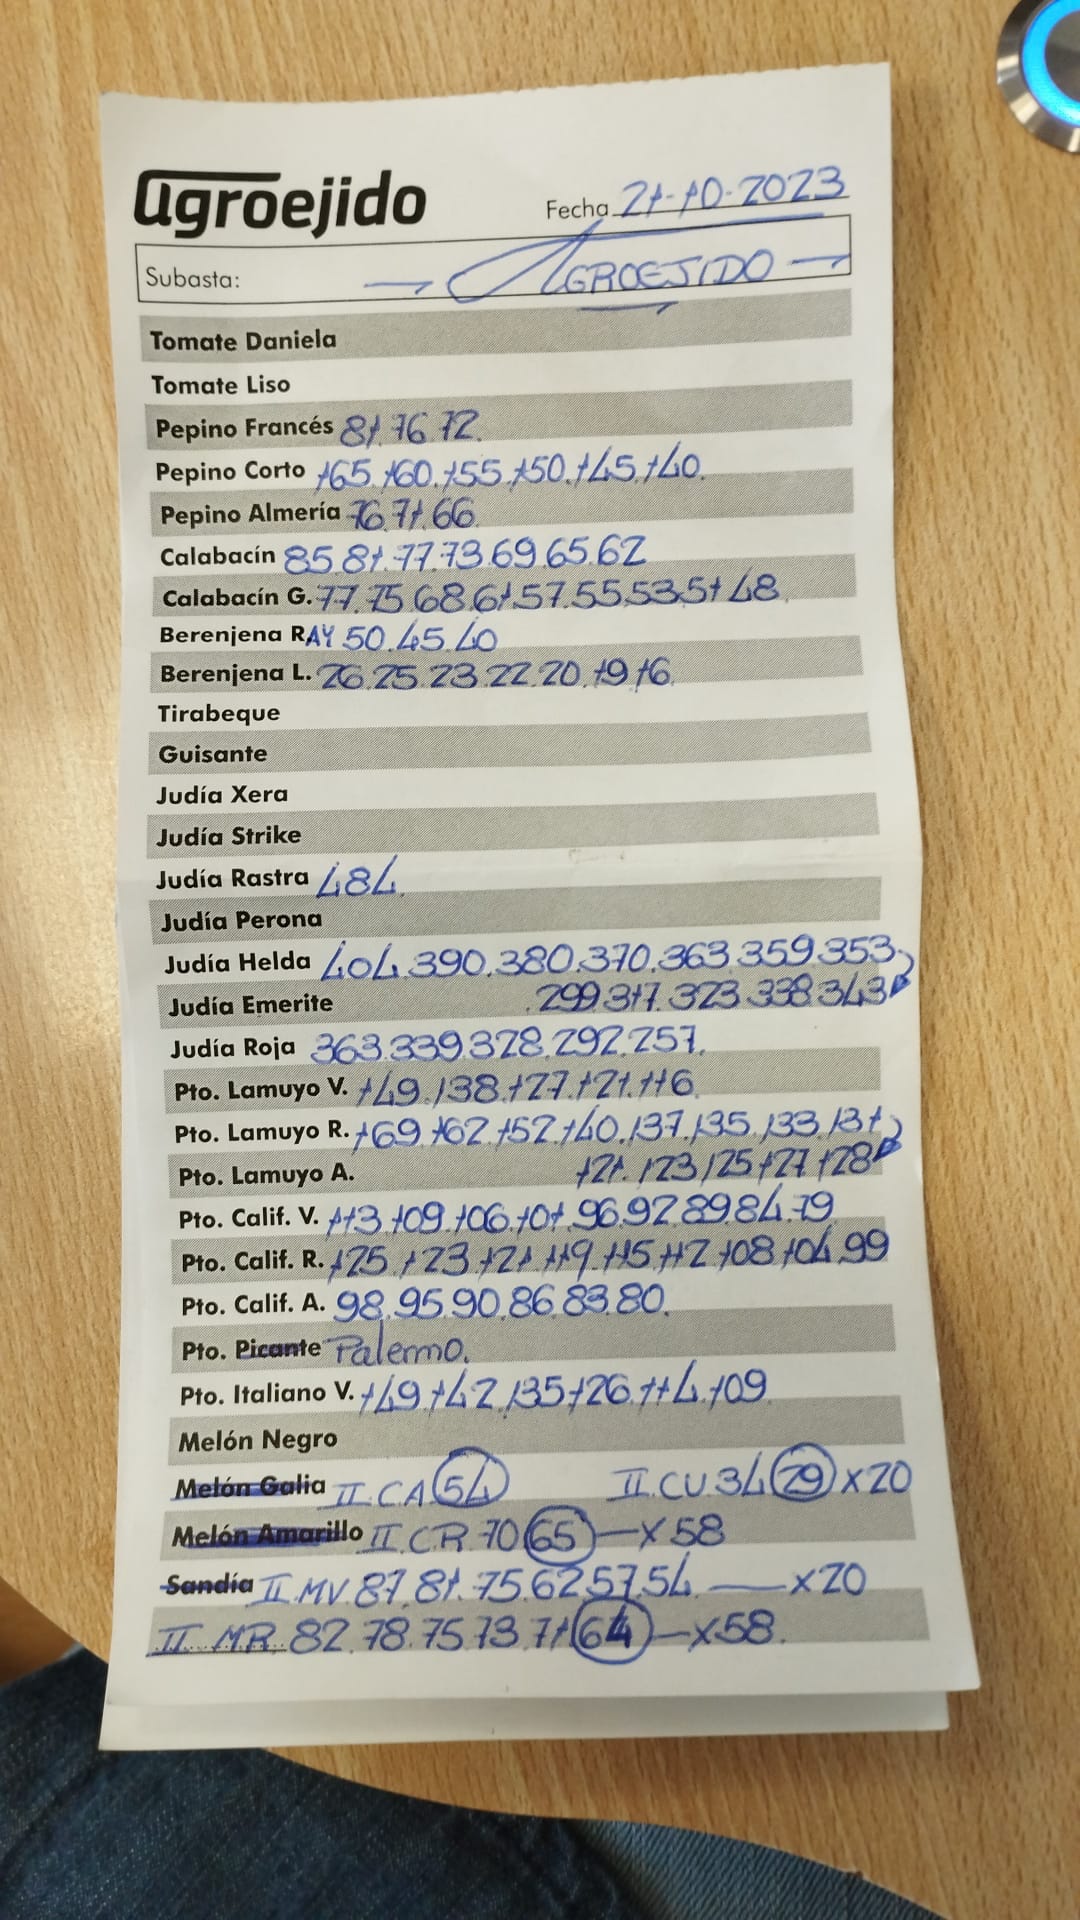 agroejido
Fecha 21-10-2023
Subasta: AGROEJIDO
Tomate Daniela
Tomate Liso
Pepino Francés 81.76.72.
Pepino Corto 165.160.155.150.145.140.
Pepino Almería 76.71.66
Calabacín 85.81.77.73.69.65.62
Calabacín G. 77.75.68.61.57.55.53.51.48
Berenjena RAY 50.45.40
Berenjena L. 26.25.23.22.20.19.16.
Tirabeque
Guisante
Judía Xera
Judía Strike
Judía Rastra 484.
Judía Perona
Judía Helda 404.390.380.370.363.359.353
Judía Emerite 299.317.323.338.343
Judía Roja 363.339.328.292.257.
Pto. Lamuyo V. 149.138.127.121.116.
Pto. Lamuyo R. 169.162.152.140.137.135.133.131
Pto. Lamuyo A. 121.123.125.127.128
Pto. Calif. V. 113.109.106.101.96.92.89.84.79
Pto. Calif. R. 125.123.121.119.115.112.108.104.99
Pto. Calif. A. 98.95.90.86.83.80.
Pto. Picante Palermo.
Pto. Italiano V. 149.142.135.126.114.109
Melón Negro
Melón Galia II.CA 54 II.CU.34 29 x20
Melón Amarillo II.C.R.70 65 — x58
Sandía II.MV 87.81.75.62.57.54. — x20
II MR. 82.78.75.73.71 64 — x58.